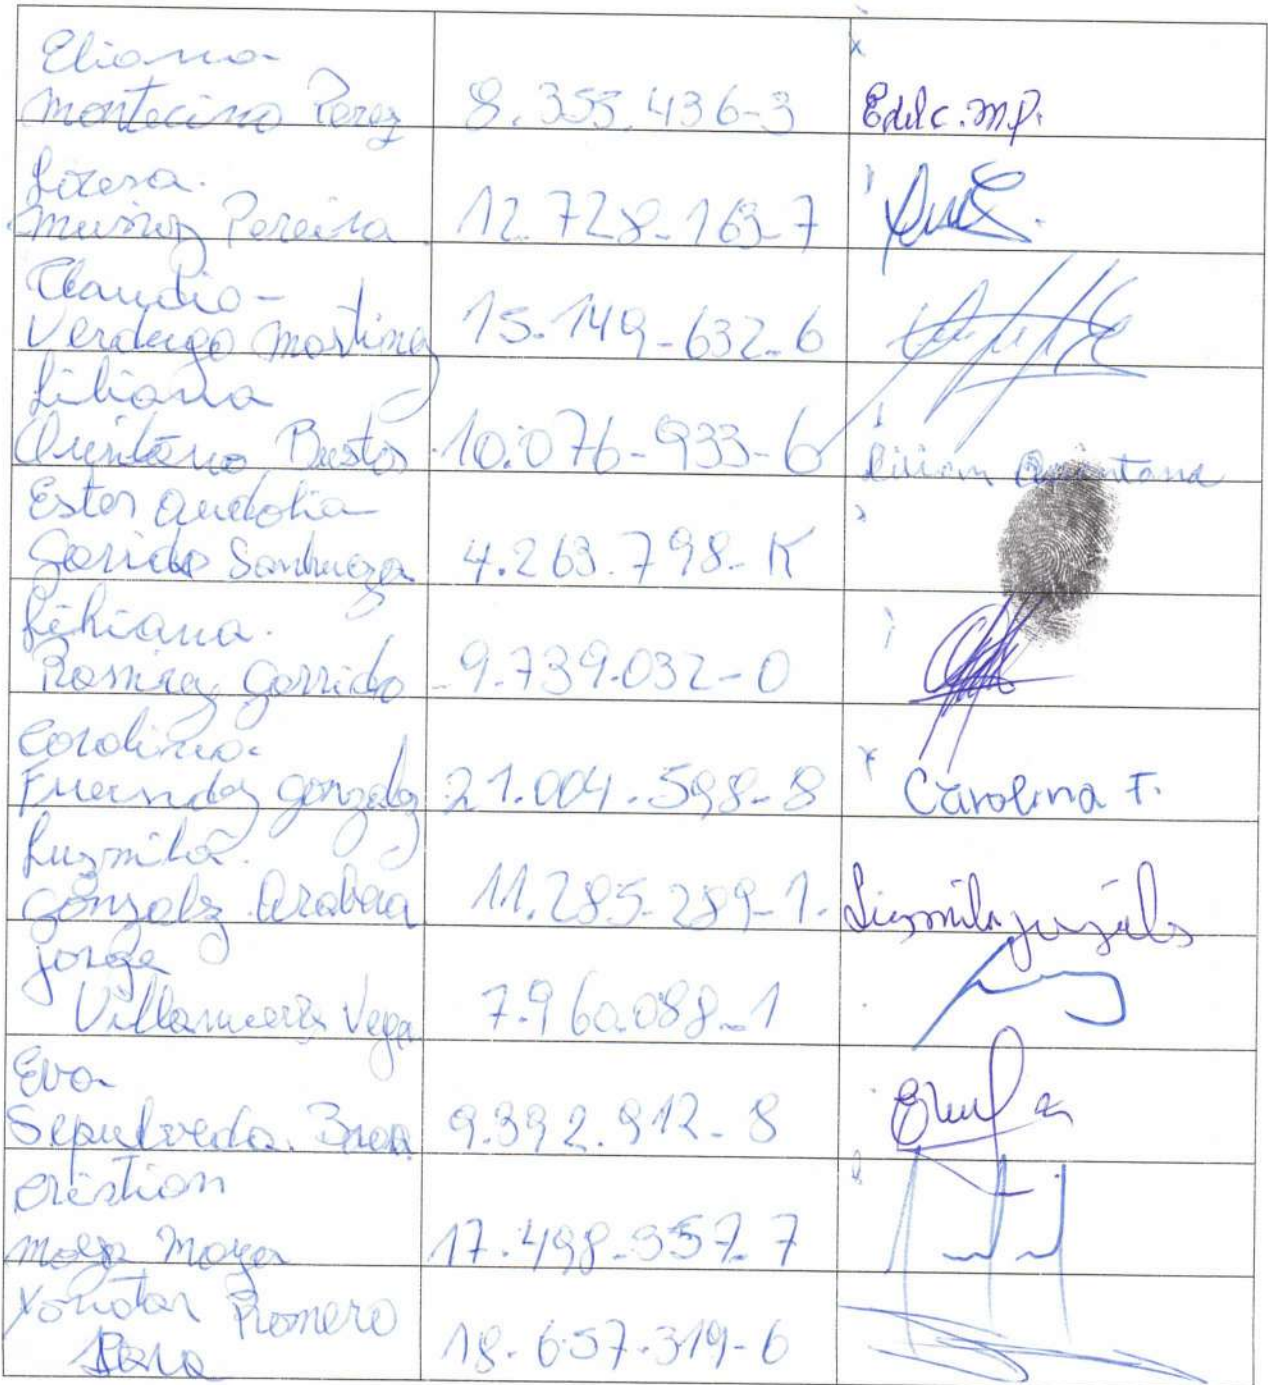 Eliana
Montecino Perez 8.355.436-3 Edilc.M.P.
Muñoz Pereira 12.728-163-7
Claudio-
Verdugo Martinez 15.149-632-6
Liliana
Quintana Bustos 10.076-933-6 Lilian Quintana
Ester
Garrido Sanhueza 4.263.798-K
Liliana.
Ramirez Garrido 9.739.032-0
Carolina
Fuendez Gonzalez 21.004.598-8 Carolina F.
Luzmila.
Gonzalez 11.285-289-1. Luzmila
Jorge
Vega 7.960.088-1
Eva
Sepulveda 9.392.912-8
Cristian
Moya Moya 17.498-557-7
Romero
18.657.319-6